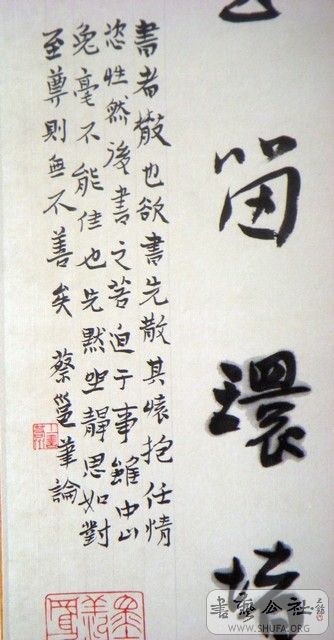 留環
書者散也欲書先散其懷抱任情
恣性然後書之若迫于事雖中山
兔毫不能佳也先默坐靜思如對
至尊則無不善矣 蔡邕筆論
書藝公社
WWW.SHUFA.ORG